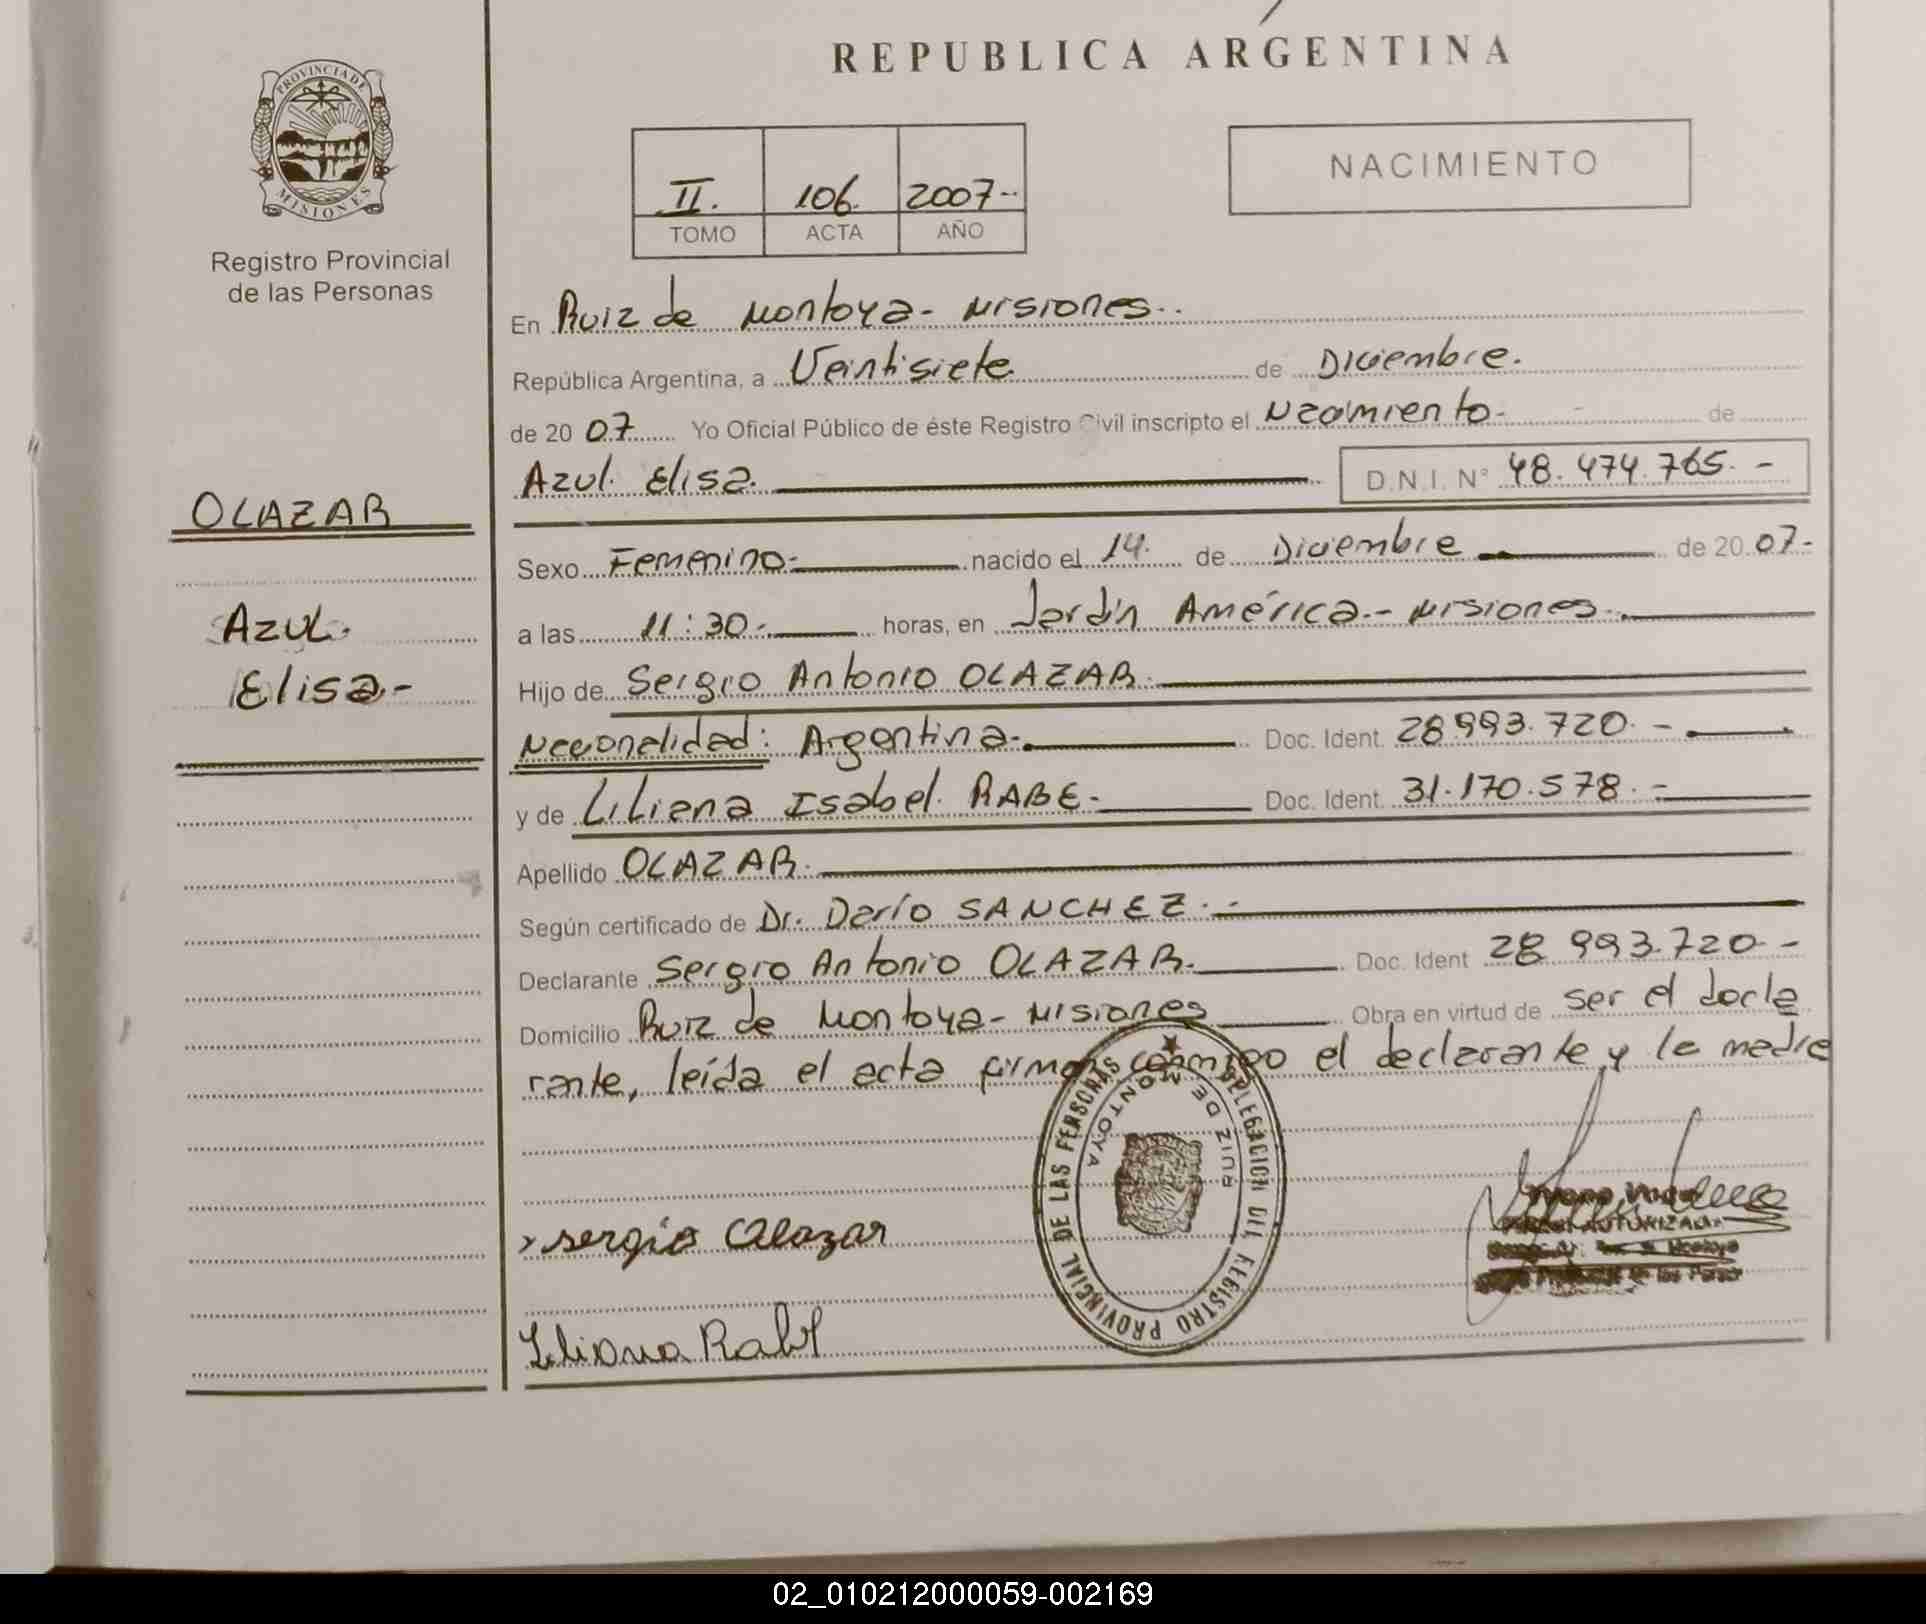 REPUBLICA ARGENTINA
PROVINCIA DE
MISIONES
Registro Provincial
de las Personas
II. 106. 2007--
TOMO ACTA AÑO
NACIMIENTO
En Ruiz de Montoya - Misiones..
República Argentina, a Veintisiete de Diciembre.
de 20 07 Yo Oficial Público de éste Registro Civil inscripto el Nacimiento- de
Azul Elisa. D.N.I. N° 48.474.765.-
OLAZAR
Azul.
Elisa.-
Sexo Femenino- nacido el 14. de Diciembre de 20 07-
a las 11:30.- horas, en Jardín América - Misiones.
Hijo de Sergio Antonio OLAZAR.
Nacionalidad: Argentina. Doc. Ident. 28.993.720.-
y de Liliana Isabel RABE- Doc. Ident. 31.170.578.-
Apellido OLAZAR.
Según certificado de Dr. Darío SANCHEZ.-
Declarante Sergio Antonio OLAZAR. Doc. Ident 28 993.720--
Domicilio Ruiz de Montoya - Misiones Obra en virtud de ser el decla
rante, leída el acta firman conmigo el declarante y la madre
DELEGACION DEL REGISTRO PROVINCIAL DE LAS PERSONAS
RUIZ DE MONTOYA
Sergio Olazar
Liliana Rabe
02_010212000059-002169